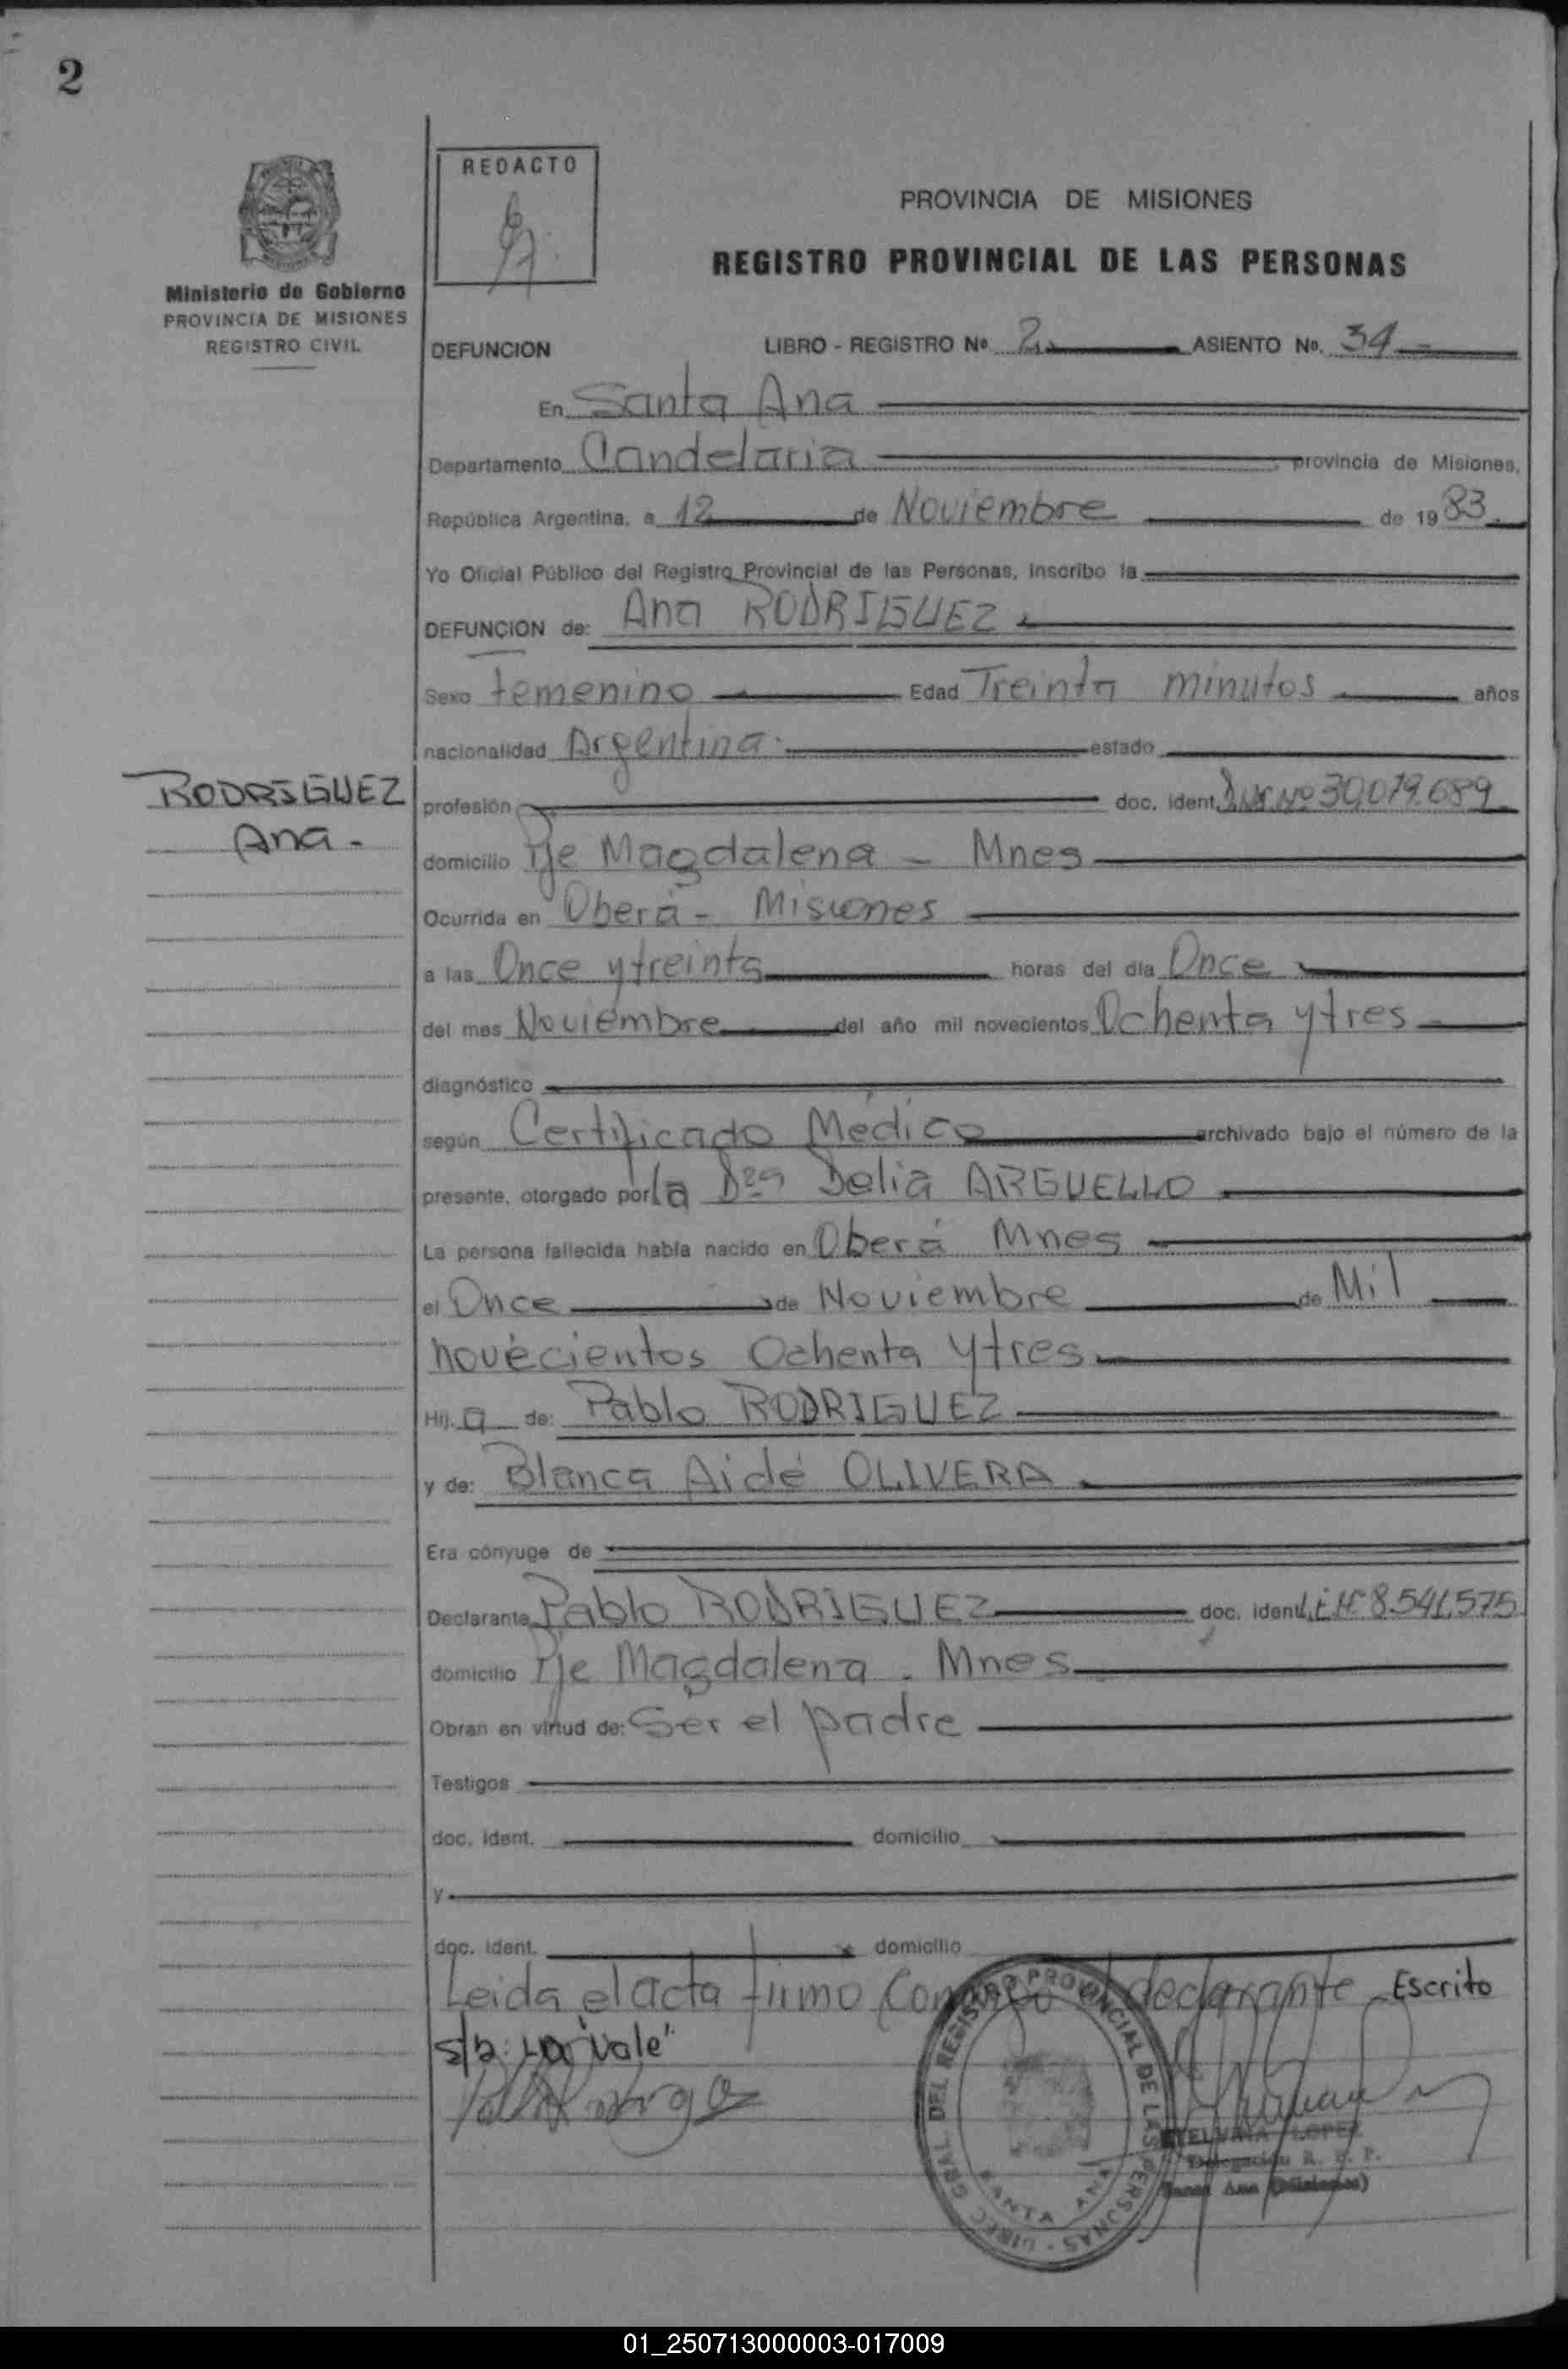 2
REDACTO
PROVINCIA DE MISIONES
REGISTRO PROVINCIAL DE LAS PERSONAS
Ministerio de Gobierno
PROVINCIA DE MISIONES
REGISTRO CIVIL
DEFUNCION LIBRO - REGISTRO Nº 2 ASIENTO Nº. 34
En Santa Ana
Departamento Candelaria provincia de Misiones,
República Argentina, a 12 de Noviembre de 1983.
Yo Oficial Público del Registro Provincial de las Personas, inscribo la
DEFUNCION de: Ana RODRIGUEZ
Sexo femenino Edad Treinta minutos años
nacionalidad Argentina. estado
RODRIGUEZ
Ana -
profesión doc. ident. Nº 30.079.689
domicilio Pje Magdalena - Mnes
Ocurrida en Oberá - Misiones
a las Once y treinta horas del día Once
del mes Noviembre del año mil novecientos Ochenta y tres
diagnóstico
según Certificado Médico archivado bajo el número de la
presente, otorgado por la Dra Delia ARGUELLO
La persona fallecida había nacido en Oberá Mnes
el Once de Noviembre de Mil
novecientos Ochenta y tres
Hij. a de: Pablo RODRIGUEZ
y de: Blanca Aidé OLIVERA
Era cónyuge de
Declarante Pablo RODRIGUEZ doc. ident. 8.541.575
domicilio Pje Magdalena - Mnes
Obran en virtud de: Ser el padre
Testigos
doc. ident. domicilio
y
doc. ident. domicilio
Leida el acta firmo conmigo el declarante Escrito
s/b: "Vale"
DIREC. GRAL. DEL REGISTRO PROVINCIAL DE LAS PERSONAS
SANTA ANA
ETELVINA LOPEZ
Delegación R. P. P.
Santa Ana (Misiones)
01_250713000003-017009